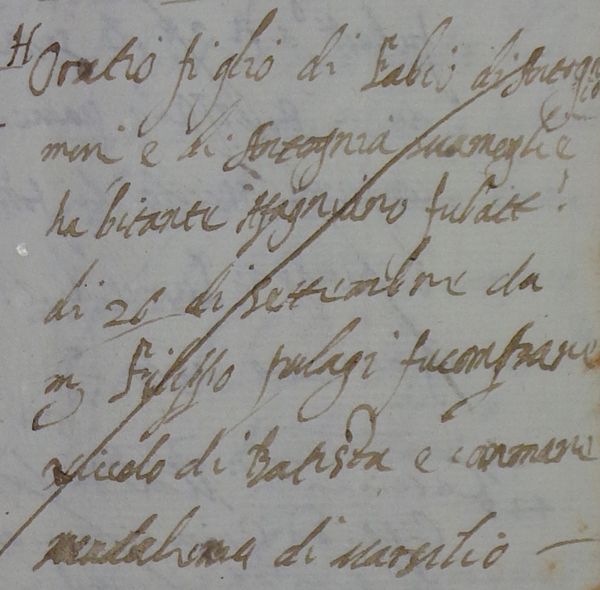 H Oratio figlio di Fabio di Antogn
mini e di Antognia sua moglie
habitanti fu batt:
di 26 di settembre da
m Filippo pulagi fu compare
Nicolo di Batista e commare
di marsilio